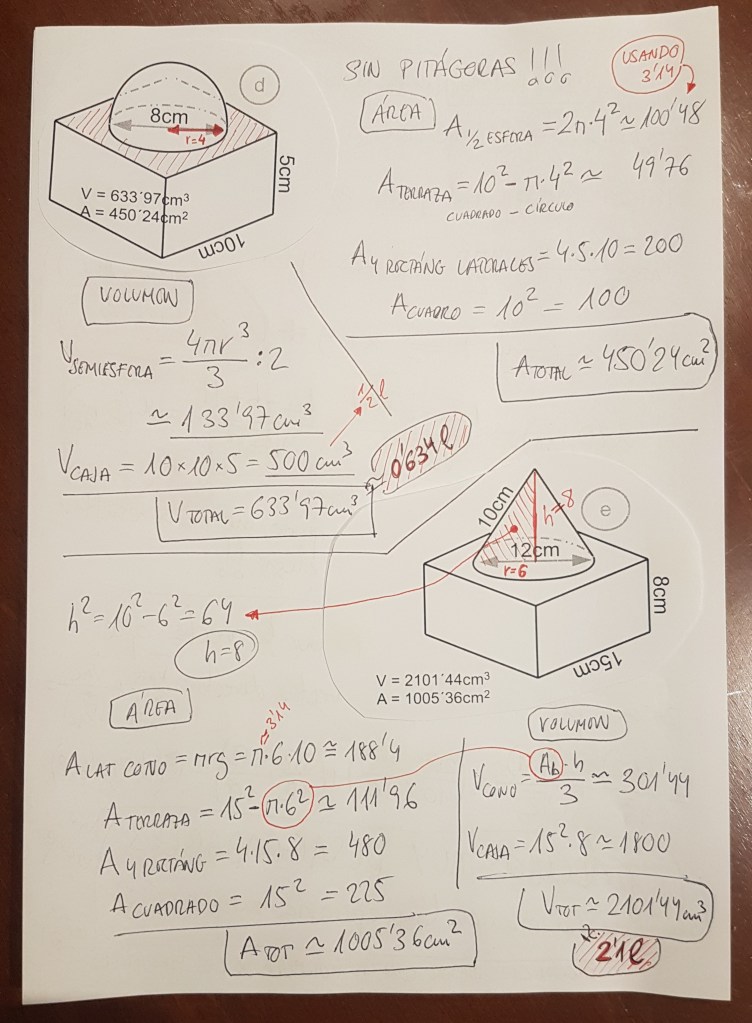 d
8cm
r=4
5cm
10cm
V = 633´97cm³
A = 450´24cm²
SIN PITÁGORAS !!!
USANDO
3'14
ÁREA
A 1/2 ESFORA = 2π·4² ≃ 100'48
A TERRAZA = 10² - π·4² ≃ 49'76
CUADRADO - CÍRCULO
A 4 RECTÁNG LATERALES = 4·5·10 = 200
A CUADRO = 10² = 100
A TOTAL ≃ 450'24 cm²
VOLUMON
V SEMIESFORA = 4πr³/3 : 2
≃ 133'97 cm³
1/2 l
V CAJA = 10×10×5 = 500 cm³
V TOTAL = 633'97 cm³ ≃ 0'634 l
e
10cm
h=8
12cm
r=6
8cm
15cm
V = 2101´44cm³
A = 1005´36cm²
h² = 10² - 6² = 64
h=8
ÁREA
≃ 3'14
A LAT CONO = πrg = π·6·10 ≅ 188'4
A TERRAZA = 15² - π·6² ≃ 111'96
A 4 RECTÁNG = 4·15·8 = 480
A CUADRADO = 15² = 225
A TOT ≃ 1005'36 cm²
VOLUMON
V CONO = Ab·h/3 ≃ 301'44
V CAJA = 15²·8 ≃ 1800
V TOT ≃ 2101'44 cm³
≃ 2'1 l